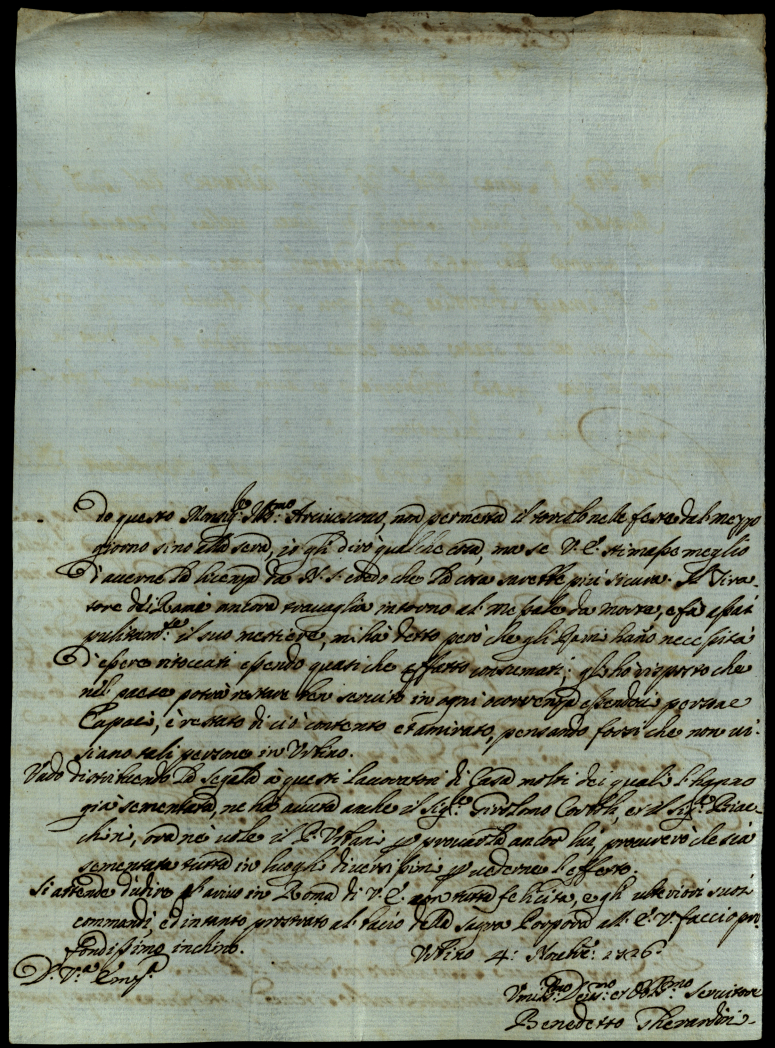 do questo Monsig.re Ill.mo Arcivescovo, non permetta il torchio nelle feste dal mezzo
giorno sino alla sera, io gli dirò qualche cosa, ma se V. E. stimasse meglio
d'averne la licenza da N. S. credo che la cosa sarebbe più sicura. Il Tira-
tore di Rami ancora travaglia intorno al Messale da morto, e fa assai
pulitam.te il suo mestiere, mi hà detto però che gli Rami hano necessità
d'essere ritoccati essendo quasi che affatto consumati; gli hò risposto che
nel paese potrà restare ben servito in ogni occorrenza essendoci persone
Capaci, è restato di ciò contento et amirato, pensando forsi che non vi
siano tali persone in Urbino.
Vado distribuendo la segala à questi lavoratori di Casa molti dei quali l'hanno
già sementata, ne hà avuta anche il Sig.re Girolamo et il Sig.re
chini, ora ne vole il P. p provarla ancor lui, procurerò che sia
sementata tutta in luoghi diversissimi p vederne l'effetto.
Si attende d'udire l'arrivo in Roma di V. E. con tutta felicità, e gli ulteriori suoi
commandi, ed intanto prostrato al bacio della Sagra Porpora all' E. V. faccio pro-
fondissimo inchino.
Urbino 4: Novbre: 1726.
D. V.ra Em.za
Umil.mo Dev.mo et Obl.mo Servitore
Benedetto Gherardini